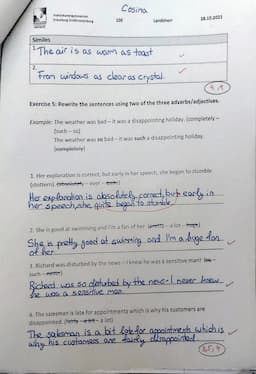 Cosina
106
Landsheer
18.10.2021
Similes
1. The air is as warm as toast
2. From windows as clear as crystal.
Exercise 5: Rewrite the sentences using two of the three adverbs/adjectives.
Example: The weather was bad – it was a disappointing holiday. (completely –
(such – so)
The weather was so bad – it was such a disappointing holiday.
(completely)
1. Her explanation is correct, but early in her speech, she began to stumble.
(absolutely – over – quite)
Her explanation is absolutely correct, but early in
her speech, she quite began to stumble.
2. She is good at swimming and I'm a fan of her. – a lot –
She is pretty good at swimming and I'm a huge fan
of her
3. Richard was disturbed by the news – I knew he was a sensitive man!
such –
Richard was so disturbed by the news - I never knew
he was a sensitive man.
4. The salesman is late for appointments which is why his customers are
disappointed. – a bit – a lot)
The salesman is a bit late for appointments which is
why his customers are disappointed.